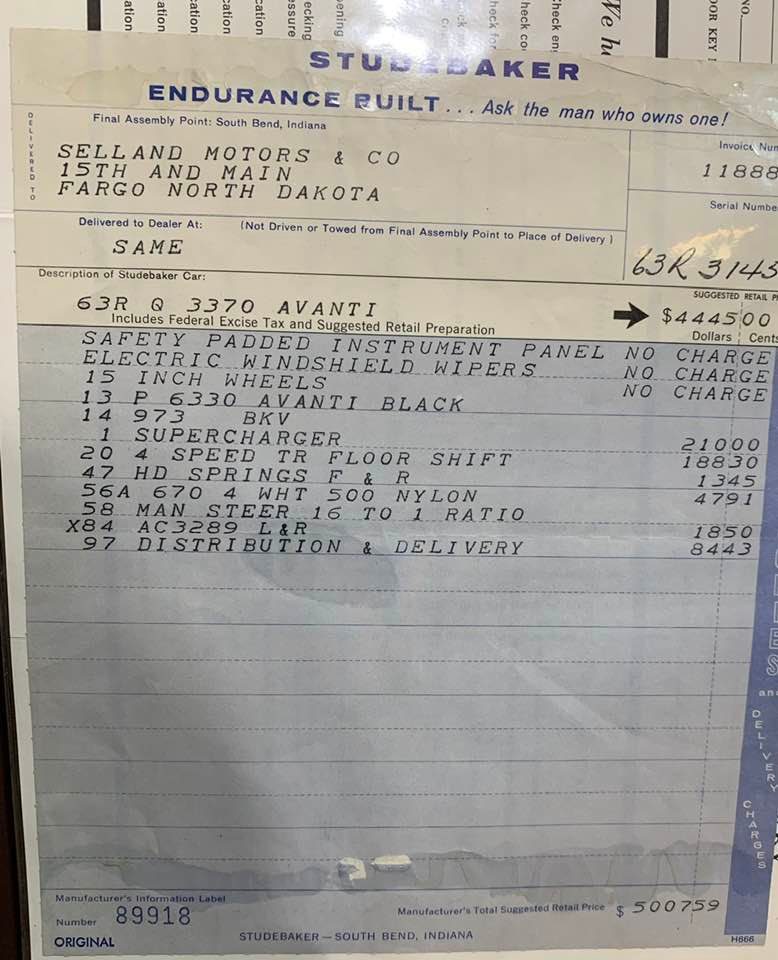 STUDEBAKER
ENDURANCE BUILT... Ask the man who owns one!
DELIVERED TO
Final Assembly Point: South Bend, Indiana
SELLAND MOTORS & CO
15TH AND MAIN
FARGO NORTH DAKOTA
Invoice Num
11888
Serial Numbe
63R 3143
Delivered to Dealer At: (Not Driven or Towed from Final Assembly Point to Place of Delivery)
SAME
Description of Studebaker Car:
63R Q 3370 AVANTI
Includes Federal Excise Tax and Suggested Retail Preparation
SUGGESTED RETAIL P
$4445 00
Dollars Cents
SAFETY PADDED INSTRUMENT PANEL NO CHARGE
ELECTRIC WINDSHIELD WIPERS NO CHARGE
15 INCH WHEELS NO CHARGE
13 P 6330 AVANTI BLACK
14 973 BKV
1 SUPERCHARGER 21000
20 4 SPEED TR FLOOR SHIFT 18830
47 HD SPRINGS F & R 1345
56A 670 4 WHT 500 NYLON 4791
58 MAN STEER 16 TO 1 RATIO
X84 AC3289 L&R 1850
97 DISTRIBUTION & DELIVERY 8443
and
DELIVERY
CHARGES
Manufacturer's Information Label
Number 89918
Manufacturer's Total Suggested Retail Price $ 500759
ORIGINAL
STUDEBAKER—SOUTH BEND, INDIANA
H666